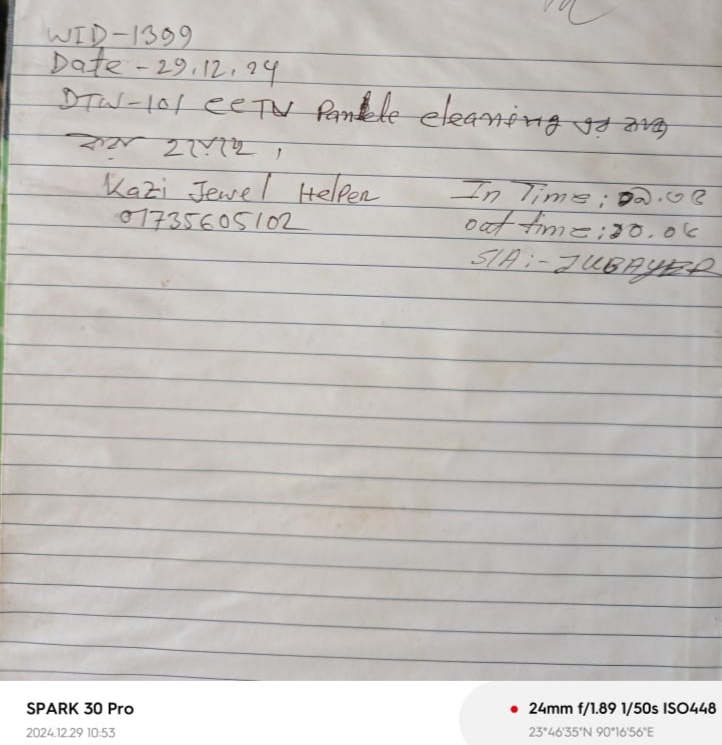 WID-1399
Date - 29.12.24
DTW-101 CCTV Pankle cleaning এর কাজ
করা হয়েছে।
Kazi Jewel Helper In Time:
01735605102 out time:
S/A:- JUBAYER
SPARK 30 Pro
2024.12.29 10:53
24mm f/1.89 1/50s ISO448
23°46'35"N 90°16'56"E